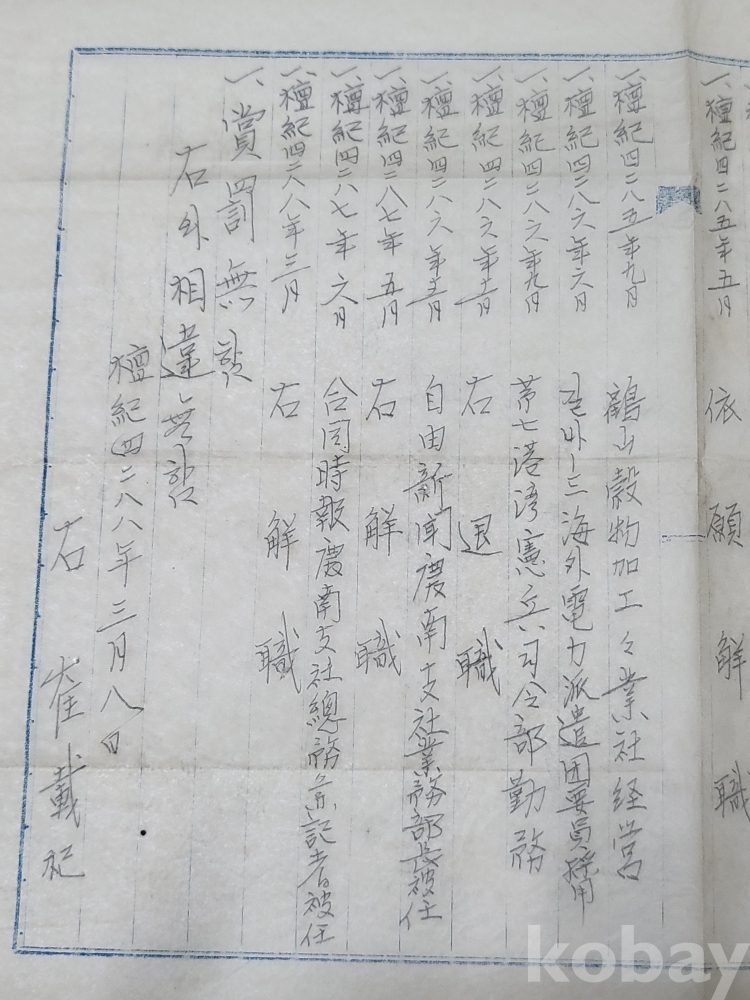 一、檀紀四二八五年五月 依願解職
一、檀紀四二八五年九月 鶴山穀物加工々業社経営
一、檀紀四二八六年六月 길바ー드海外電力派遣団要員採用
一、檀紀四二八六年九月 第七港湾憲兵司令部勤務
一、檀紀四二八六年十一月 右退職
一、檀紀四二八六年十二月 自由新聞慶南支社業務部長被任
一、檀紀四二八七年五月 右解職
一、檀紀四二八七年六月 合同時報慶南支社總務兼記者被任
一、檀紀四二八八年三月 右解職
一、賞罰無함
右外相違無함
檀紀四二八八年三月八日
右 崔載
kobay